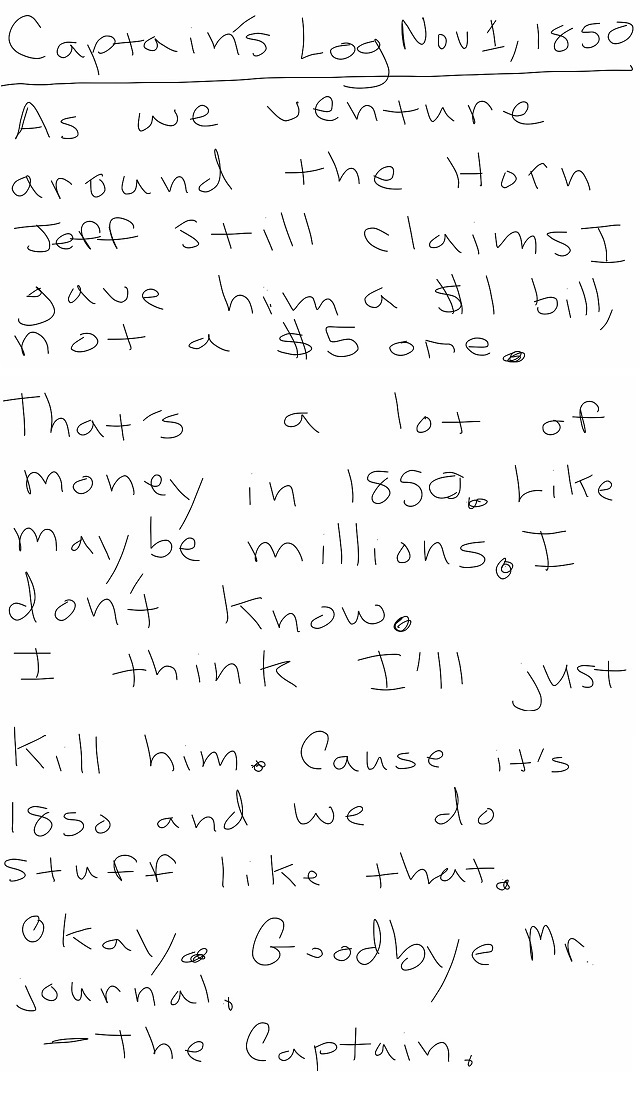 Captain's Log Nov 1, 1850
As we venture
around the Horn
Jeff still claims I
gave him a $1 bill,
not a $5 one.
That's a lot of
money in 1850. Like
maybe millions. I
don't know.
I think I'll just
kill him. Cause it's
1850 and we do
stuff like that.
Okay. Goodbye Mr.
journal.
-The Captain.